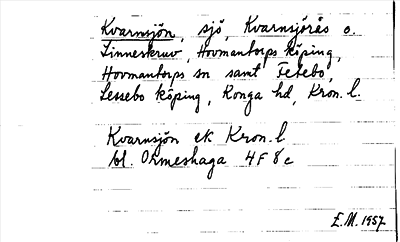 Kvarnsjön, sjö, Kvarnsjöräs o.
Linneskruv, Hovmantorps köping,
Hovmantorps sn samt Fetebo,
Lessebo köping, Konga hd, Kron. l.
Kvarnsjön ek Kron. l
bl. Ormeshaga 4F 8c
E.M. 1957